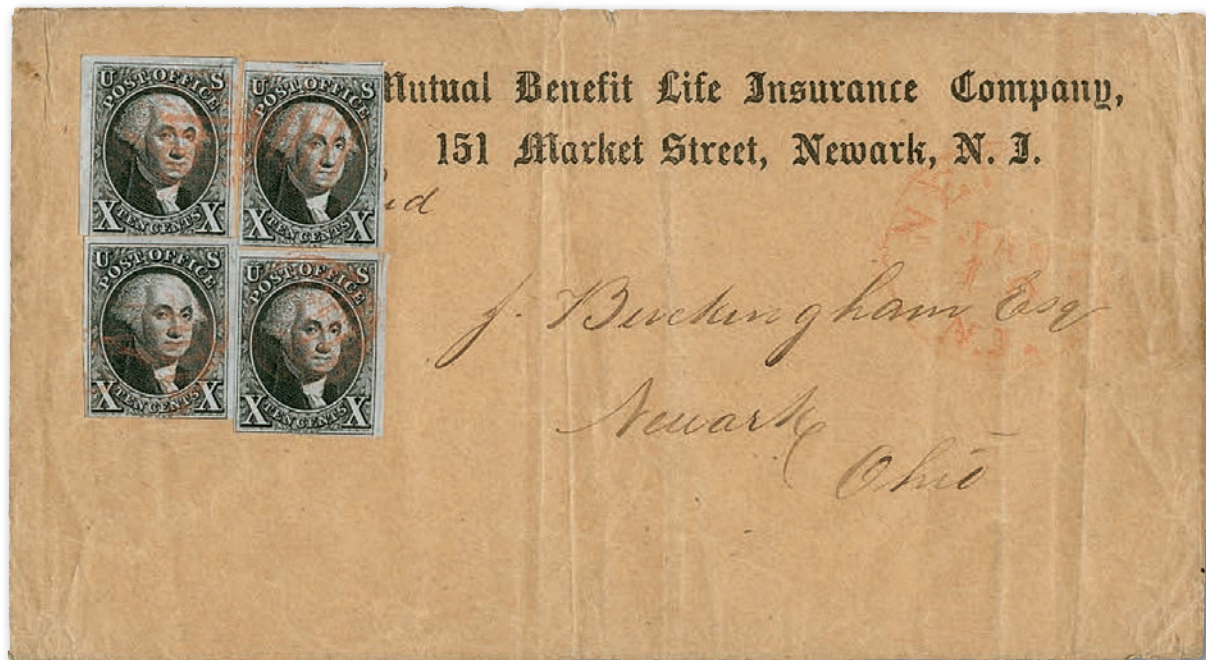 U S
POST OFFICE
X TEN CENTS X
U S
POST OFFICE
X TEN CENTS X
U S
POST OFFICE
X TEN CENTS X
U S
POST OFFICE
X TEN CENTS X
Mutual Benefit Life Insurance Company,
151 Market Street, Newark, N. J.
J. Buckingham Esq
Newark
Ohio
N.J.